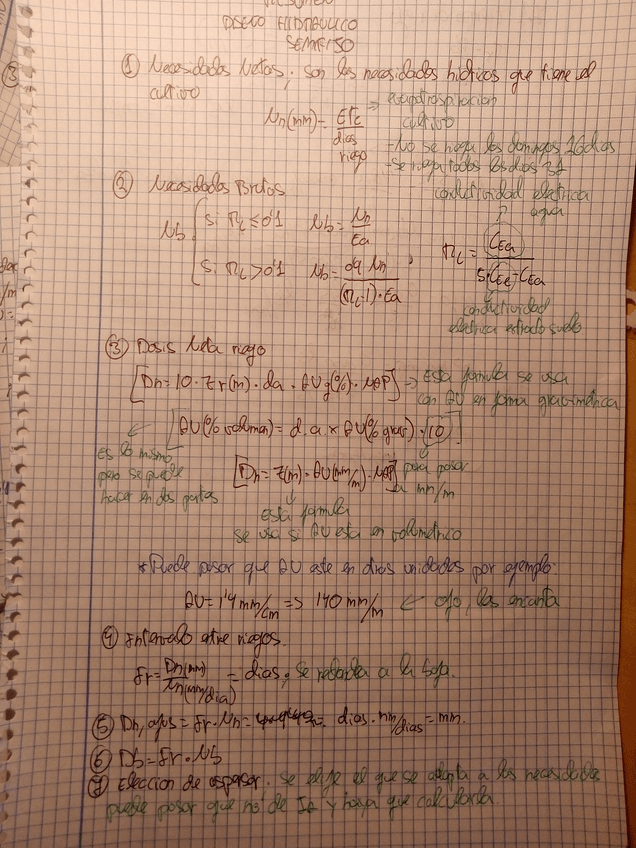 DISEÑO HIDRAULICO
SEMIFIJO
① Necesidades Netas; son las necesidades hidricas que tiene el
cultivo
Nn(mm) = ETc / dias riego
→ evapotranspiracion
cultivo
- No se riega los domingos 26 dias
- Se riega todos los dias 31
② Necesidades Brutas
conductividad electrica
agua
Nb
Si RL ≤ 0'1 Nb = Nn / Ea
Si RL > 0'1 Nb = 0'9 Nn / (RL-1)·Ea , RL = CEa / 5·CEe - CEa
conductividad
electrica extracto suelo
③ Dosis Neta riego
[Dn = 10 · Zr(m) · da · AUg(%) · NAP] → Esta formula se usa
con AU en forma gravimetrica
[AU(% volumen) = d.a. x AU(% grav) · 10]
Es lo mismo
pero se puede
hacer en dos partes
[Dn = Z(m) · AU(mm/m) · NAP]
para pasar
a mm/m
esta formula
se usa si AU esta en volumetrico
* Puede pasar que AU este en otras unidades por ejemplo:
AU = 1'4 mm/cm => 140 mm/m ← ojo, les encanta
④ Intervalo entre riegos.
Ir = Dn(mm) / Nn(mm/dia) = dias; se redondea a la baja.
⑤ Dn, ajus = Ir · Nn = dias · mm/dias = mm.
⑥ Db = Ir · Nb
⑦ Eleccion de aspersor. se elije el que se adapta a las necesidades
puede pasar que no de Ia y haya que calcularla.